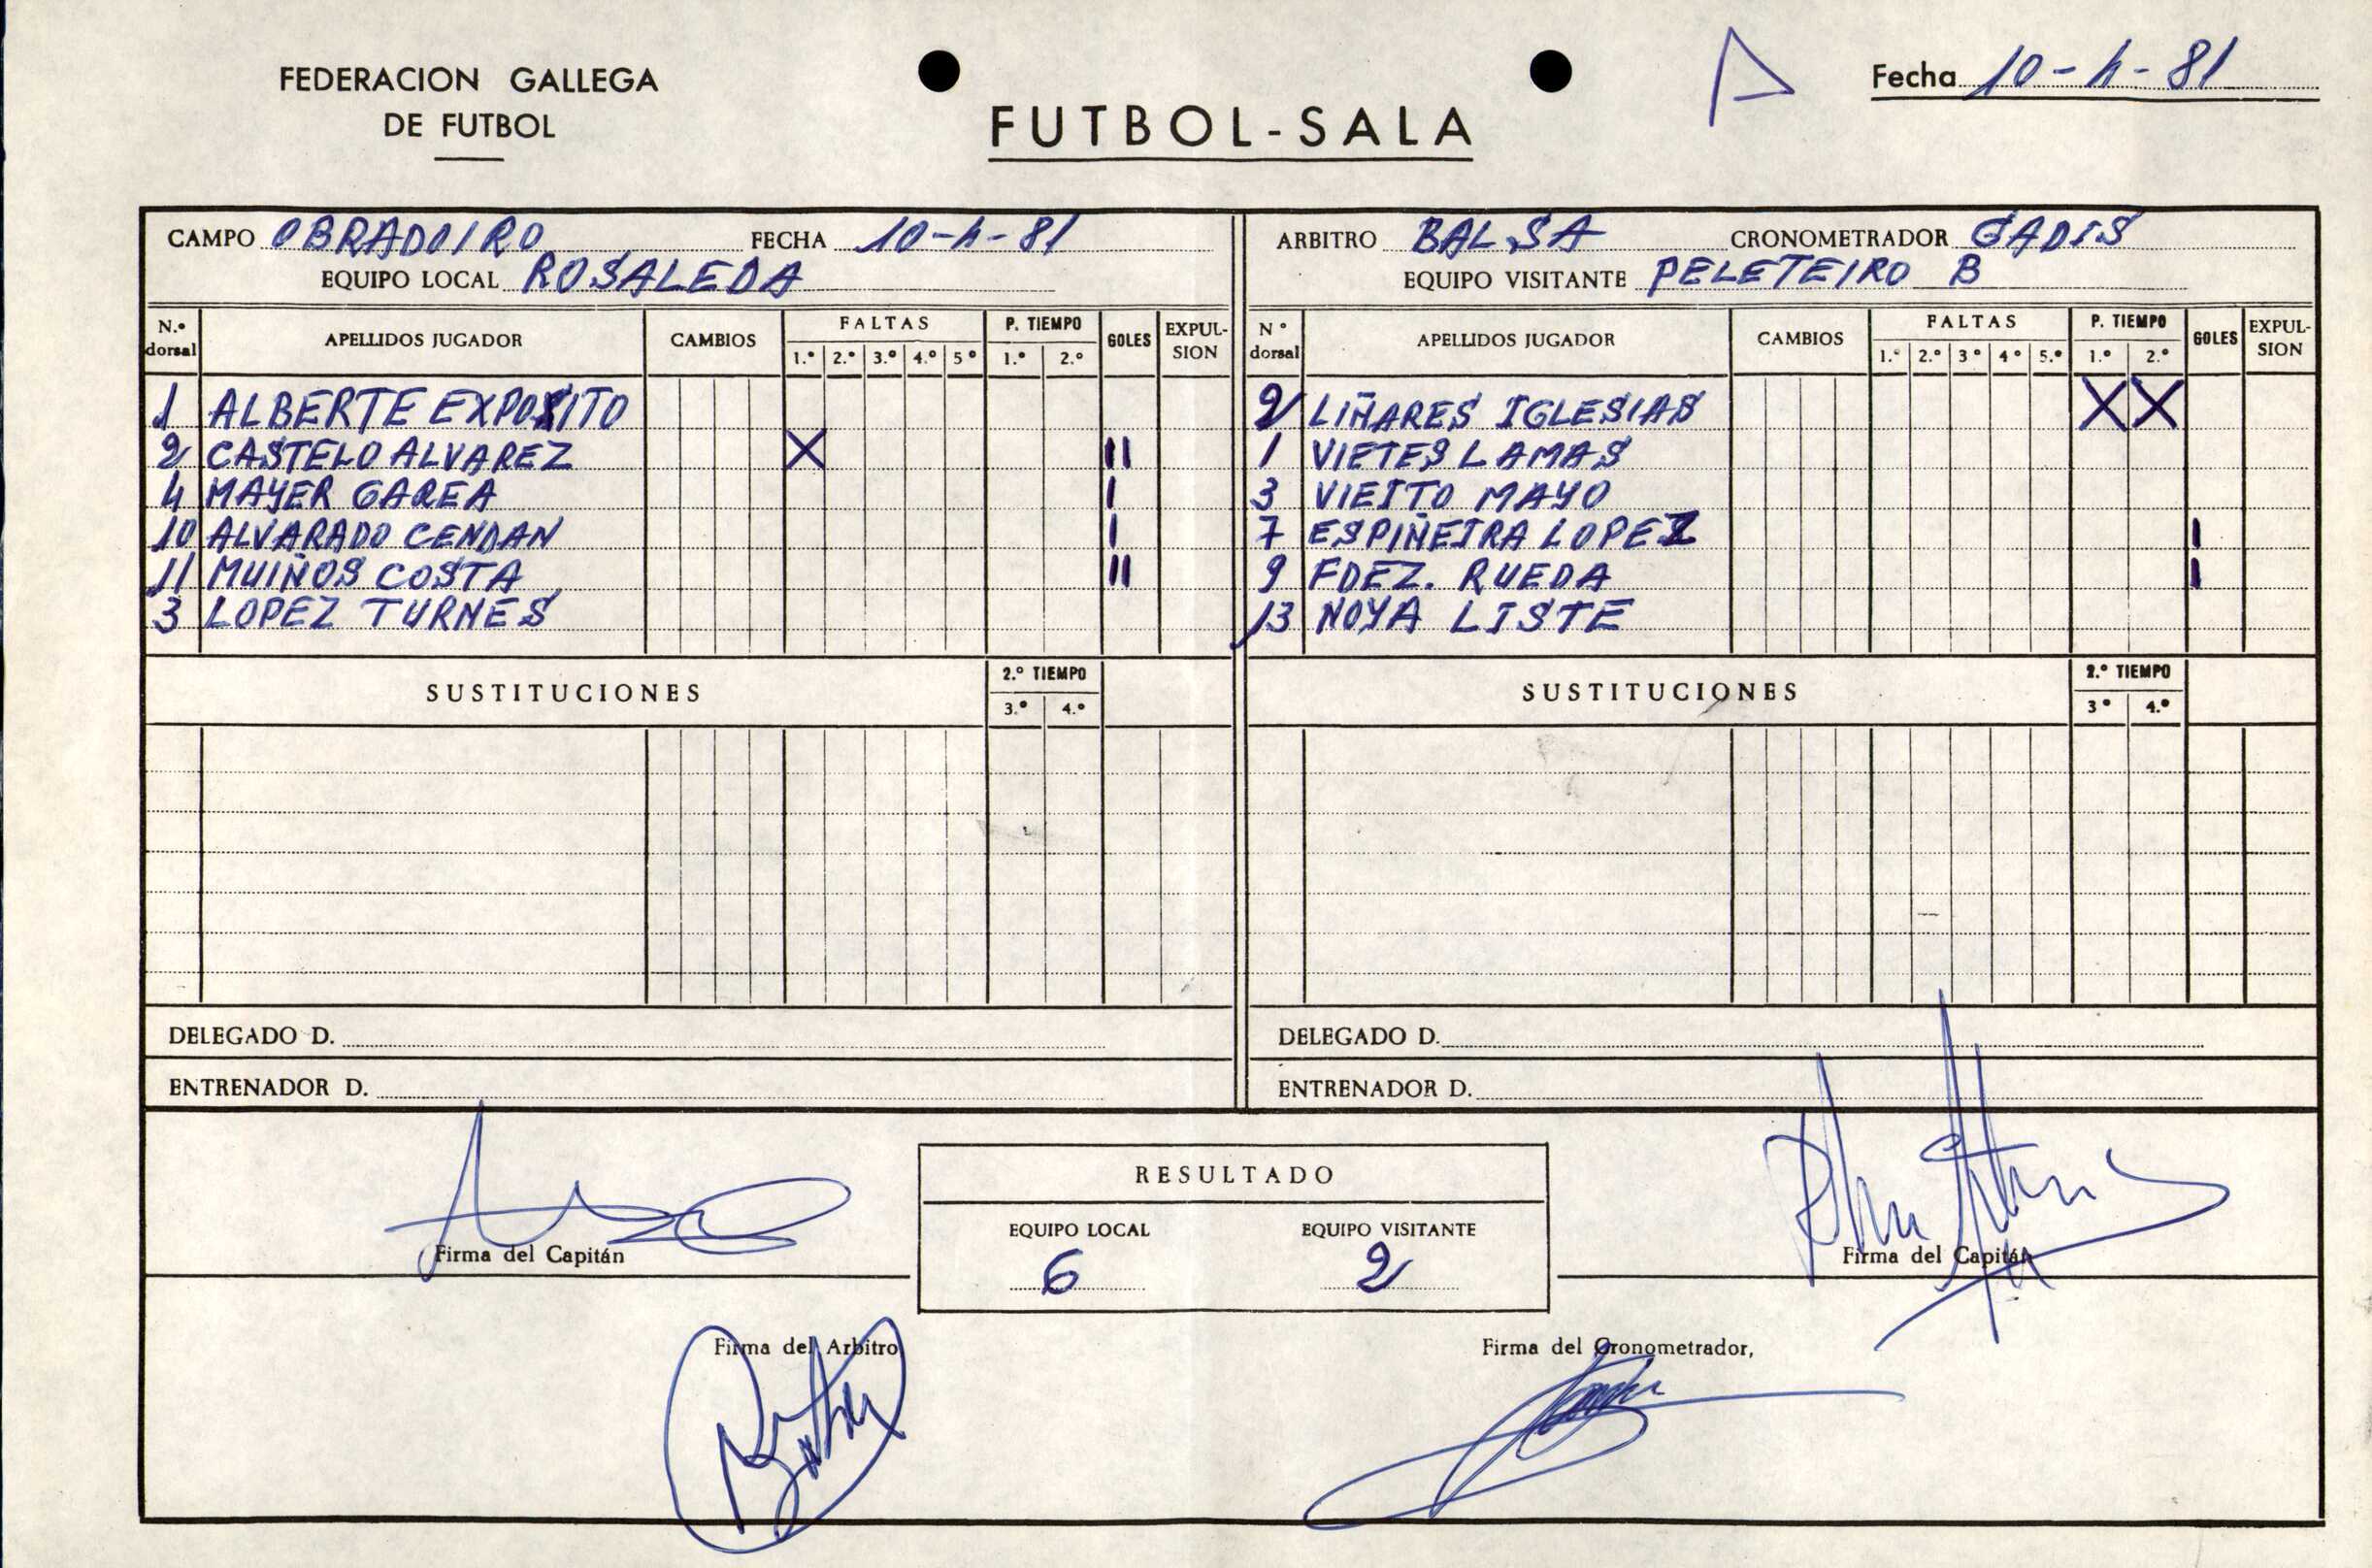 FEDERACION GALLEGA
DE FUTBOL
FUTBOL-SALA
Fecha 10-4-81
CAMPO OBRADOIRO FECHA 10-4-81
EQUIPO LOCAL ROSALEDA
ARBITRO BALSA CRONOMETRADOR GADIS
EQUIPO VISITANTE PELETEIRO B
N.º dorsal APELLIDOS JUGADOR CAMBIOS FALTAS 1.º 2.º 3.º 4.º 5º P. TIEMPO 1.º 2.º GOLES EXPUL-SION
1 ALBERTE EXPOSITO
2 CASTELO ALVAREZ X II
4 MAYER GAREA I
10 ALVARADO CENDAN I
11 MUIÑOS COSTA II
3 LOPEZ TURNES
SUSTITUCIONES 2.º TIEMPO 3.º 4.º
DELEGADO D.
ENTRENADOR D.
Nº dorsal APELLIDOS JUGADOR CAMBIOS FALTAS 1.º 2.º 3º 4º 5.º P. TIEMPO 1.º 2.º GOLES EXPUL-SION
2 LIÑARES IGLESIAS X X
1 VIETES LAMAS
3 VIEITO MAYO
7 ESPIÑEIRA LOPEZ I
9 FDEZ. RUEDA I
13 NOYA LISTE
SUSTITUCIONES 2.º TIEMPO 3º 4.º
DELEGADO D.
ENTRENADOR D.
RESULTADO
EQUIPO LOCAL EQUIPO VISITANTE
6 2
Firma del Capitán
Firma del Capitán
Firma del Arbitro
Firma del Cronometrador,